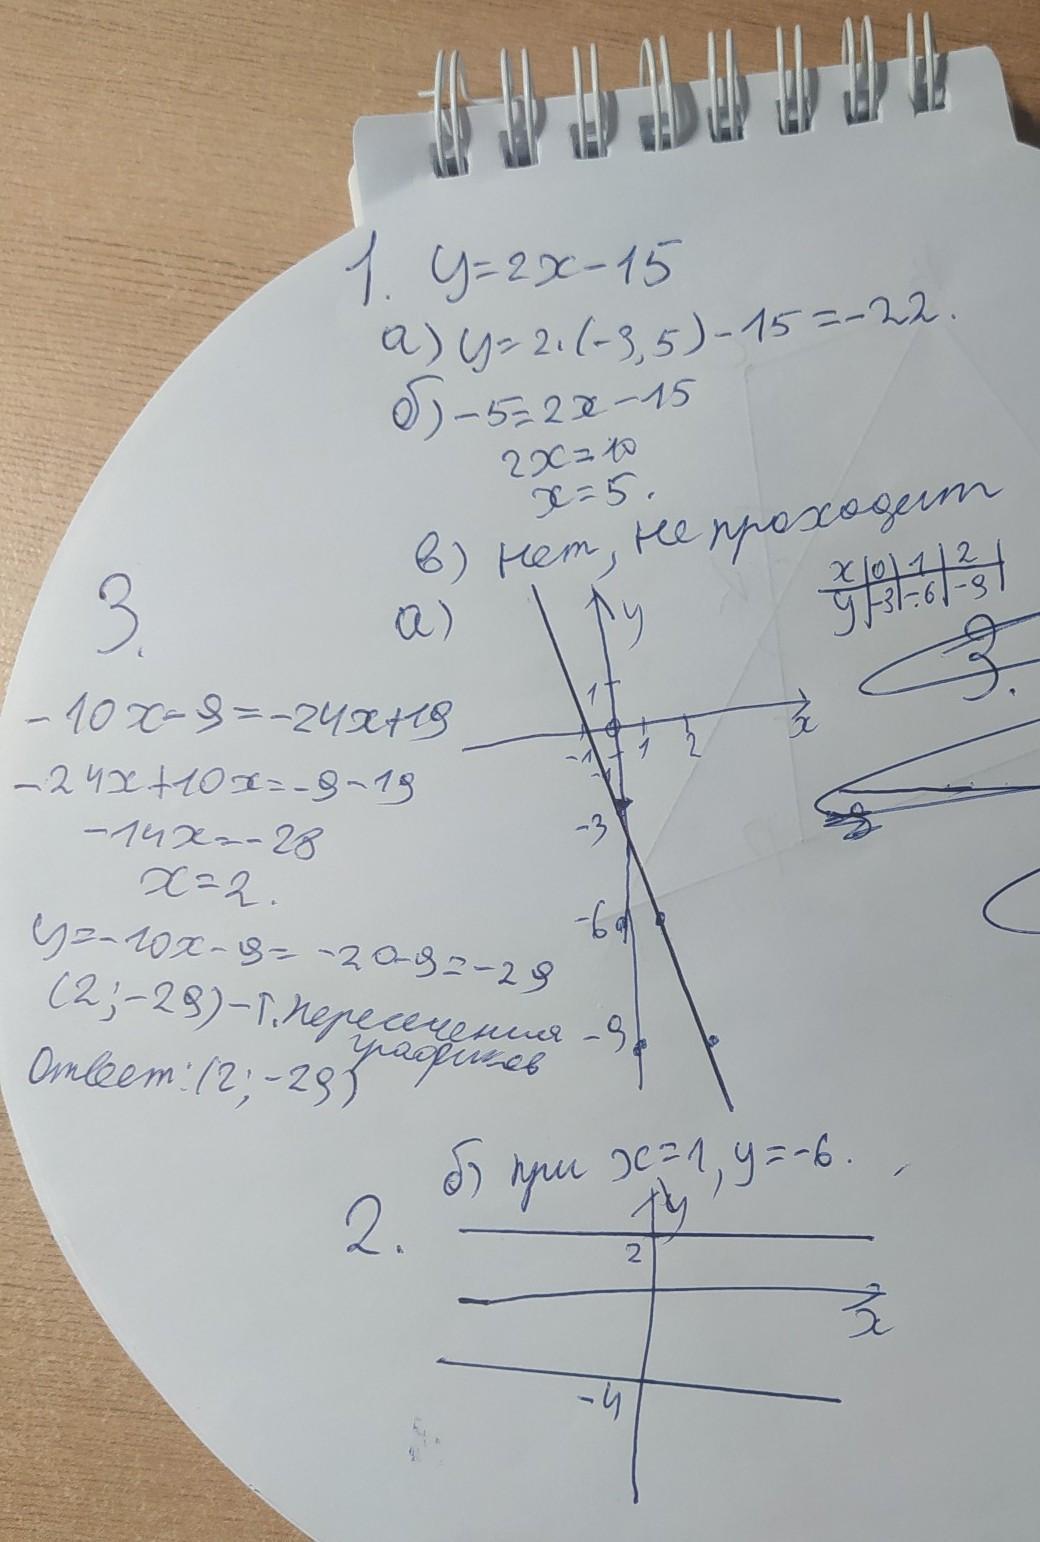 1. y=2x-15
а) y=2·(-3,5)-15=-22.
б) -5=2x-15
2x=10
x=5.
в) нет, не проходит
а)
y
x
1
-1
-1
1
2
-3
-6
-9
x|0|1|2|
y|-3|-6|-9|
3.
3.
-10x-9=-24x+19
-24x+10x=-9-19
-14x=-28
x=2.
y=-10x-9=-20-9=-29
(2;-29)-т.пересечения
графиков
Ответ:(2;-29)
б) при x=1, y=-6.
2.
y
2
x
-4